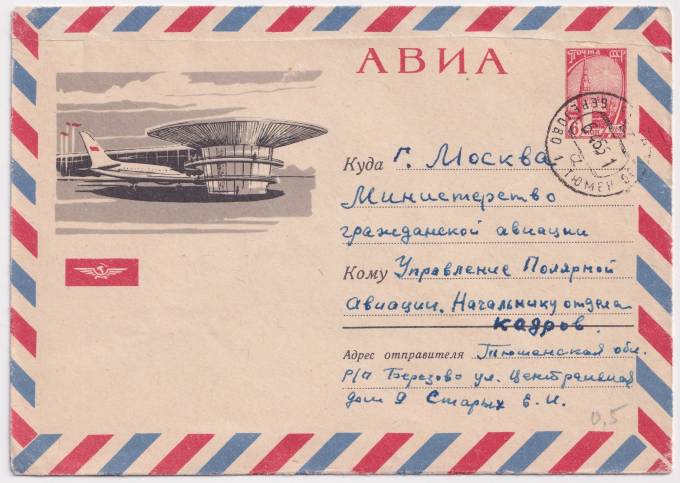 АВИА
ПОЧТА СССР
6
Куда г. Москва
Министерство
гражданской авиации
Кому Управление Полярной
Авиации. Начальнику отдела
кадров.
Адрес отправителя Тюменская обл.
Р/п Березово ул. Центральная
дом 9 Старых
БЕРЕЗОВО ТЮМЕН
0,5